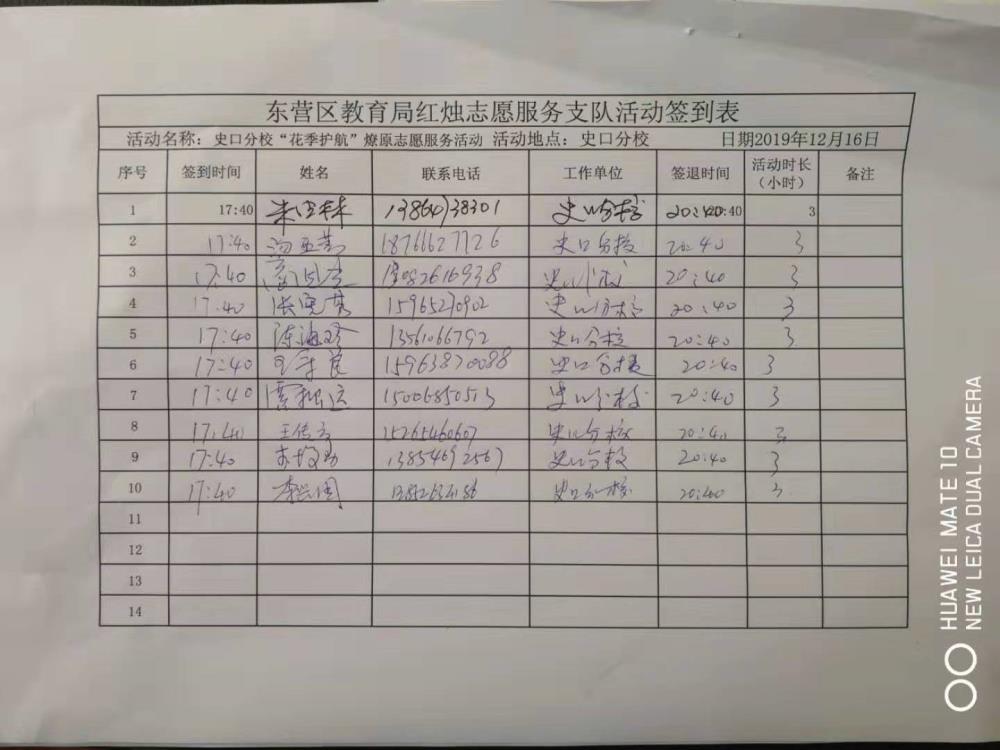 东营区教育局红烛志愿服务支队活动签到表
活动名称：史口分校“花季护航”燎原志愿服务活动 活动地点：史口分校 日期2019年12月16日
序号 签到时间 姓名 联系电话 工作单位 签退时间 活动时长（小时） 备注
1 17:40 史口分校 20:40 20:40 3
2 17:40 18766627726 史口分校 20:40 3
3 17:40 史口分校 20:40 3
4 17:40 15965270902 史口分校 20:40 3
5 17:40 陈海玲 13561066792 史口分校 20:40 3
6 17:40 15963870088 史口分校 20:40 3
7 17:40 15006850513 史口分校 20:40 3
8 17:40 15265460607 史口分校 20:40 3
9 17:40 13854692567 史口分校 20:40 3
10 17:40 李兴国 史口分校 20:40 3
11
12
13
14
HUAWEI MATE 10
NEW LEICA DUAL CAMERA